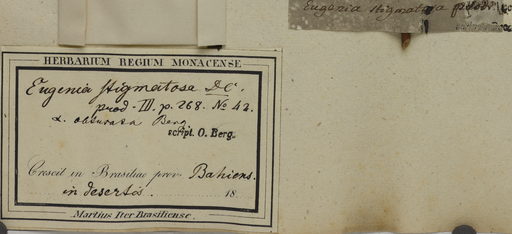 Eugenia stigmatosa
HERBARIUM REGIUM MONACENSE
Eugenia stigmatosa DC.
prod. III. p. 268. No 42.
α. obscurata Berg
script. O. Berg.
Crescit in Brasiliae prov. Bahiens.
in desertis. 18
Martius Iter Brasiliense.